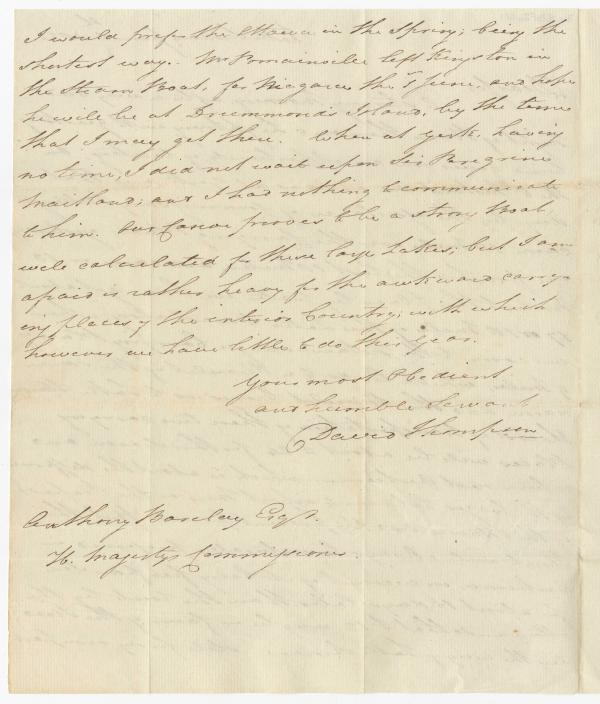 I would prefer the Ottawa in the Spring; being the
shortest way. Mr Bonainville left Kingston in
the Steam Boat, for Niagara the 7 June, and hopes
he will be at Drummonds Island, by the time
that I may get there. When at York, having
no time, I did not wait upon Sir Peregrine
Maitland; and I had nothing to communicate
to him. Our Canoe proves to be a strong Boat
well calculated for these large Lakes; but I am
afraid is rather heavy for the awkward carry
ing places of the interior Country; with which
however we have little to do this year.
Your most Obedient
and humble Servant
David Thompson
Anthony Barclay Esqr.
H. Majestys Commissioner